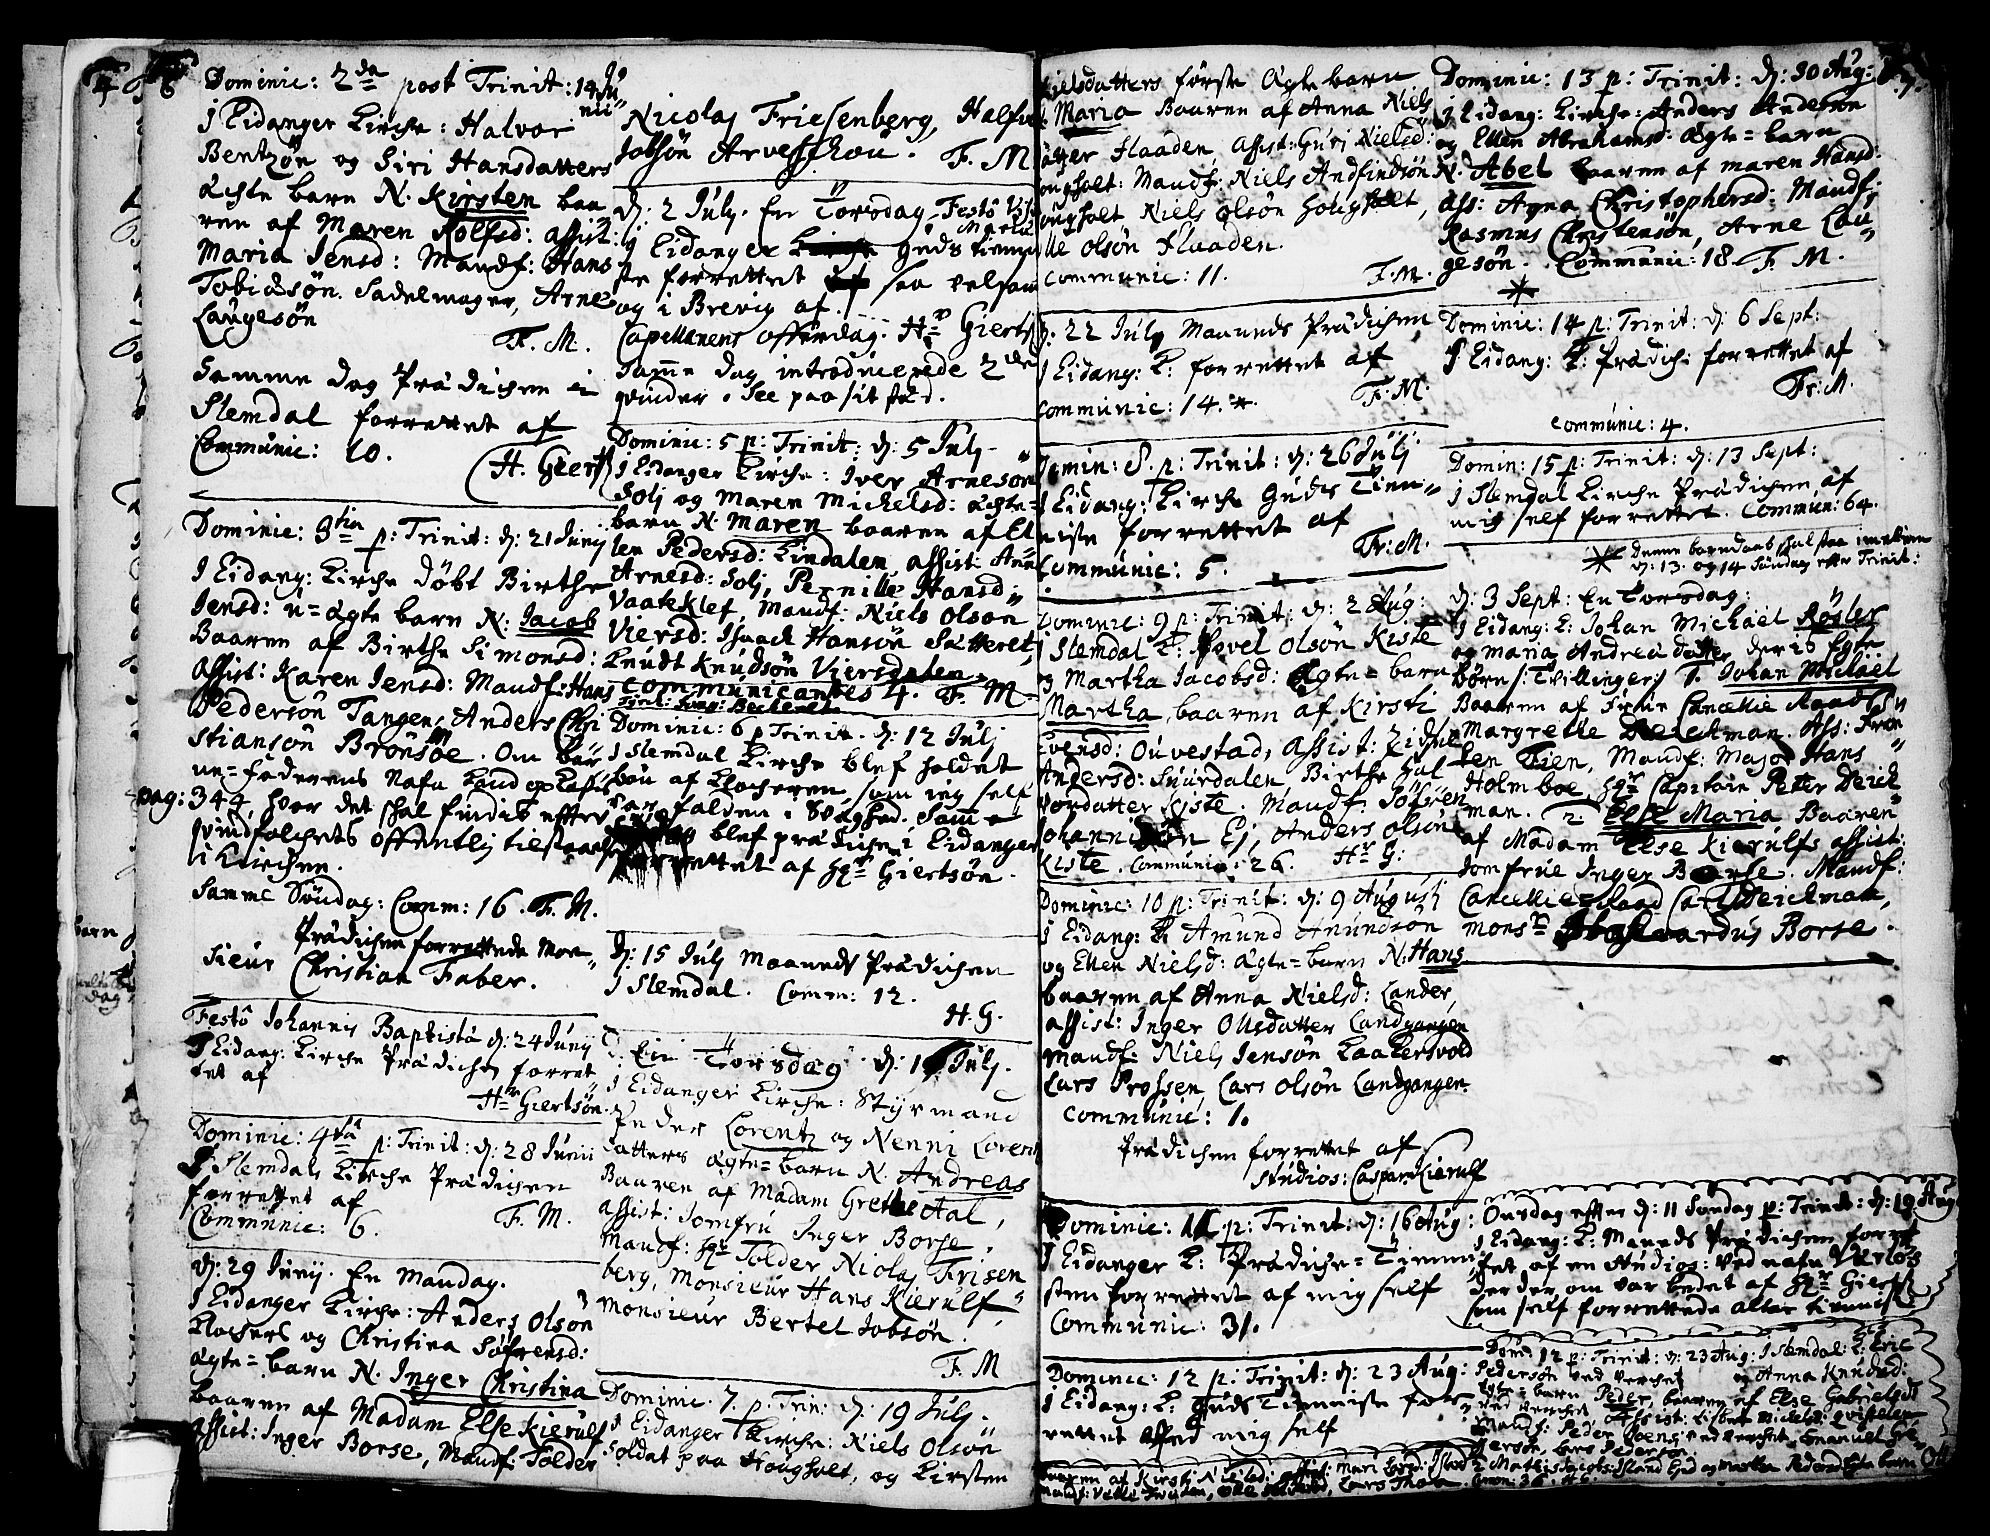 Dominic: 2da post Trinit: 14 Ju
nii
J Eidanger Kirche: Halvor
Bentzøn og Siri Hansdatters
ächte barn N. Kirsten baa
ren af Maren Rolfsd: assist:
Maria Jensd: Maudf: Hans
Tobiasøn Sadelmager, Arne
Laugesøn
F. M.
Samme dag Prædichen i
Slemdal forrettet af
Communic: 10.
H. Giertss
Dominic: 3tia p: Trinit: d: 21 Junij
J Eidang: Kirche døbt Birthe
Jensd: u=ägte barn N: Jacob
Baaren af Birthe Simonsd:
assist: Karen Jensd: Maudf: Hans
Pedersøn Tangen, Anders Chri
stiansøn Brønsøe. Om bar
ne=faderens Nafn
pag: 344, hvor det skal findis effter
qvindfolchets offentlig tilstaaelse
i Kirchen.
Samme Søndag: Comm: 16. F. M.
Prædichen forrettede Mon
sieur Christian Faber.
Festo Johannis Baptistæ d: 24 Junij
J Eidang: Kirche Prædichen forret
tet af
Hr Giertsøn.
Dominic: 4ta p: Trinit: d: 28 Junii
J Slemdals Kirche Prædichen
forrettet af
Communic: 6. F. M.
d: 29 Junij. En Mandag.
J Eidanger Kirche: Anders Olson
Klochers og Christina Søfrensd:
ägte=barn N. Inger Christina
baaren af Madam Else Kierulf
assist: Inger Borse, Maudf: Tolder
Nicolaj Friesenberg, Halfvor
Jobsøn Arveschou. F. M
d: 2 July. En Torsdag Festo Vis:
Mariæ
J Eidanger Guds tienne
ste forrettet saa velsom
og i Brevig af
Capellanens offerdag. Hr Giertss
Samme dag introducerede 2de
qvinder. See paa sit sted.
Dominic: 5 p: Trinit: d: 5 July
J Eidanger Kirche: Iver Arnesøn
Solj og Maren Michelsd: ächte=
barn N. Maren baaren af El
len Pedersd: Lindalen, assist: Ann
Arnesd: Solj, Pernille Hansd
Vaateklef, Maudf: Niels Olson
Viersd: Isaack Hansøn Sætteret,
Knudt Knudsøn Viersdalen.
communicantes 4. F. M
Dominic: 6 p Trinit. d: 12 Julj
J Slemdal Kirche blef holdet
bøn af Klocheren, som jeg self
var falden i Svaghed. Samme
blef prædichen i Eidanger
forrettet af Hr Giertsøn.
d: 15 July Maaneds Prædichen
J Slemdal. Comm: 12.
H. G.
En Torsdag d: Julj.
J Eidanger Kirche: Styrmand
Peder Lorentz og Nenni Lorentz
datters ägte=barn N. Andreas
Baaren af Madam Grethe Aal,
assist: Jomfru Inger Borse,
Maudf: Hr Tolder Niolaj Frisen
berg, Monsieur Hans Kierulf,
monsieur Bertel Jobsøn.
F. M
Dominic. 7. p. Trin: d: 19 Julj.
J Eidanger Kirche: Niels Olsøn
Soldat paa Hougholt, og Kirsten
Nielsdatters første Ägte barn
Maria Baaren af Anna Niels
datter Flaaden, assist: Guri Nielsd:
ougholt: Maudf: Niels Andfindsøn
ougholt Niels Olsøn Hougholt,
lle Olsøn Flaaden.
Communic: 11. F. M.
d. 22 July Maaneds Prædichen
J Eidang: K: forrettet af
communic: 14. F. M.
Domin: 8. p: Trinit: d: 26 Julj
J Eidang: Kirche Guds Tien
niste forrettet af
Communic: 5. Fr: M.
Dominic: 9 p: Trinit: d: 2 Aug:
J Slemdal K: Povel Olsøn Kiste
og Martha Jacobsd: Ægte=barn
Martha, baaren af Kirsti
Evensd: Ouvestad, assist: Lisbet
Andersd: Snurdalen, Birthe Hal
vordatter Kiste. Maudf: Søfren
Johannisøn Ej, Anders Olsøn
Kiste. Communic: 26. Hr G:
Dominic: 10 p: Trinit: d: 9 Augusti
J Eidang: K: Amund Anundsøn
og Ellen Nielsd: ägte=barn N: Hans
baaren af Anna Nielsd: Lander,
assist: Inger Ollsdatter Landgangen
maudf: Niels Jensøn Laakersvold
Lars Prossen, Lars Olsøn Landgangen.
Communic: 1.
Prædichen forrettet af
Studios: Caspar Kierulf
Dominic: 11 p: Trinit: d: 16 Aug:
J Eidanger K: Prædiche=Tienni
sten forrettet af mig self
Communic: 31.
Dominic: 12 p: Trinit: d: 23 Aug:
J Eidang: K: Guds Tienniste for
rettet af mig self
Dominic: 13 p: Trinit: d: 30 Aug:
J Eidang: Kirche: Anders Andersøn
og Ellen Abrahamsd: ägte=barn
N: Abel baaren af Maren Hansd:
ass: Anna Christophersd: Maudf:
Rasmus Christensøn, Arne Lau
gesøn. Communic: 18. F. M.
Dominic: 14 p: Trinit: d: 6 Sept:
J Eidang: K: Prædich: forrettet af
Fr: M.
communic: 4.
Domin: 15 p: Trinit: d: 13 Sept:
J Slemdal Kirche Prædichen af
mig self forrettet. Commun: 64.
Denne barndaab skal staa imellem
d: 13. og 14 Sundag effter Trinit:
d: 3 Sept: En Torsdag:
J Eidang: K: Johan Michael Røsler
og Maria Andrea datter deris Egte
børn: Tvillinger: 1. Johan Michael
Baaren af Frue Cancellie Raads
Margrethe Deichman. Ass: Frø
ken Fien, Maudf: Major Hans
Holmboe, Hr Capitain Peter Deich
man. 2. Else Maria Baaren
af Madam Else Kierulfs assist:
Jomfrue Inger Borse. Maudf:
Cancellie=Raad Carl Deichman,
monsr Borse.
Onsdag effter d: 11 Søndag p: Trinit: d: 19 Aug
J Eidang: K: Maneds Prædichen forret
tet af en Studios: ved nafn Verlos
der der om var bedet af Hr Gierts
som self forrettede alter tienniste
Dom: 12 p: Trinit: d: 23 Aug: J Slemdal: K: Eric
Pedersøn ved Verchet og Anna Knudsd:
Egte=barn Peder, baaren af Else Gabrielsd
ved Verchet Assist: Lisbet Michelsd:
Maudf: Peder ved Verchet, Emanuel Pe
dersøn, Lars Pedersøn.